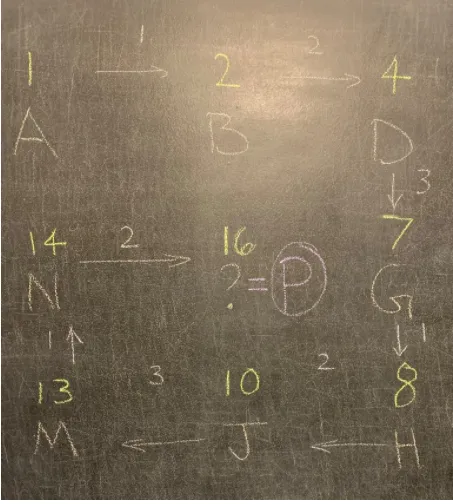 1 1 → 2 2 → 4
A B D
↓ 3
14 2 → 16 7
N ? = P G
1 ↑ ↓ 1
13 3 10 2 8
M ← J ← H